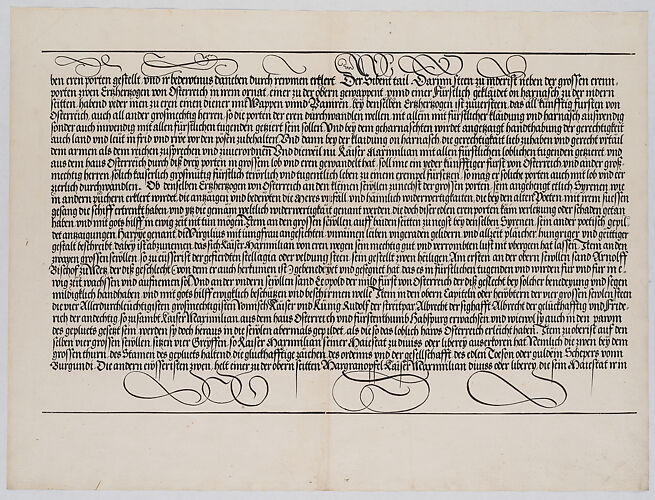 ben eren porten gestellt, vnd ir bedewtnus daneben durch reymen erklert. Der Sibent tail. Darynn steen zu vnderist neben der grossen erenn,
porten zwen Ertzhertzogen von Osterreich in irem ornat, einer zu der obern gewappent vnnd einer Fürstlich geklaidt on harnasch zu der vndern
seitten, habend yeder men zu eren einen diener mit Wappen vnnd Panirn, bey denselben Ertzhertzogen ist zuuersteen, das all künfftig fürsten von
Osterreich, auch all ander großmechtig herren, so die porten der eren durchwandlen wellen, mit allein mit fürstlicher klaidung vnd harnasch auswendig
sonder auch inwendig mit allen fürstlichen tugenden getziert sein sollen. Vnd bey dem geharnaschten wirdet angetzaigt handthabung der gerechtigkeit
auch land vnd leut in frid vnd rwe vor den pösen zubehalten. Vnd dann bey der klaidung on harnasch, die gerechtigkeit lieb zuhaben, vnd gerecht vrtail
dem armen als dem reichen zusprechen vnd zuuerordnen. Vnd dieweil nu Kaiser Maximilian mit allen fürstlichen loblichen tugenden getziert, vnd
aus dem haus Osterreich durch diß drey porten in grossem lob vnd eren gewandelt hat, soll ime ein yeder künfftiger fürst von Osterreich, vnd ander groß,
mechtig herren, solich kaiserlich großmütig fürstlich erwirdlich vnd tugentlich leben zu einem exempel fürsetzen, so mag er solich porten auch mit lob vnd er
zierlich durchwandlen. Ob denselben Ertzhertzogen von Osterreich an den kleinen sewlen zunechst der grossen porten, sein angehengt etlich Syrenen, wie
in andern püchern erklert wirdet, die antzaigen vnd bedewten die Meres vnfäll, vnd hännlich widerwertigkaiten, die bey den alten Poeten mit irem suessen
gesang die schiff ertrenckt haben, vnd ytz die gemain weltlich widerwertigkait genant werden, die doch diser edlen eren porten kain verletzung oder schaden getan
haben vnd mit gots hilff in ewig zeit mit tun mögen. Item an den grossen sewlen auff baiden seitten zunegst bey denselben Syrenen, sein ander poetisch gepyll
der antzaigungen, Harpye genant, die Virgilius mit iungfrau angesichten, vnrainen leiben, vngeenden geidern, vnd alltzeit plaicher hungriger vnd geitziger
gestalt beschreibt, dabey ist abzunemen, das sich Kaiser Maximilian von eren wegen kein mechtig gut vnd verrombten lust nit vbergen hat lassen. Item an den
zwayen grossen sewlen, so zu eüsserist der gefierdten stellagia oder veldung steen, sein gestellt zwen heiligen. Am ersten an der obern sewlen sand Arnolff
Bischof zu Metz der diß geschlecht (von dem er auch herkumen ist) gebenedeyet vnd gesegnet hat, das es in fürstlichen tugenden vnd wirden für vnd für in e,
wig zeit wachssen vnd aufnemen sol. Vnd an der vndern sewlen sand Leopold der mild fürst von Osterreich der diß geslecht bey solcher benedeyung vnd segen
mildigklich handthaben, vnd mit gots hilff ewigklich beschutzen vnd beschirmen welle. Item in den obern Capiteln oder hewbtern der vier grossen sewlen steen
die vier Allerdurchleuchtigisten großmechtigisten Romisch Kaiser vnd Künig Rudolf der streitpar, Albrecht der sighafft, Albrecht der gluckhafftig vnd Fride,
rich der andechtig so zusambt Kaiser Maximilian aus dem haus Osterreich vnd fürstenthumb Habspurg erwachssen vnd wiewol sy auch in den pawm
des gepluets gesetzt sein, werden sy doch heraus in die sewlen abermals gepildet, als die so das loblich haws Osterreich erliecht haben. Item zu oberist auf den
selben vier grossen sewlen, sitzen vier Greyffen, so Kaiser Maximilian seiner Maiestat zu diuiss oder liberey auserkoren hat. Nemlich die zwen bey dem
grossen thurn, des Stamen des gepluets, haltend die gluckhafftige zaichen, des ordenns vnd der gesellschafft des edlen Toeson oder guldem Schepers vonn
Burgundi. Die andern eusseristen zwen, helt einer zu der obern seitten Margranopffel Kaiser Maximilian diuiss oder liberey, die sein Maiestat in irn